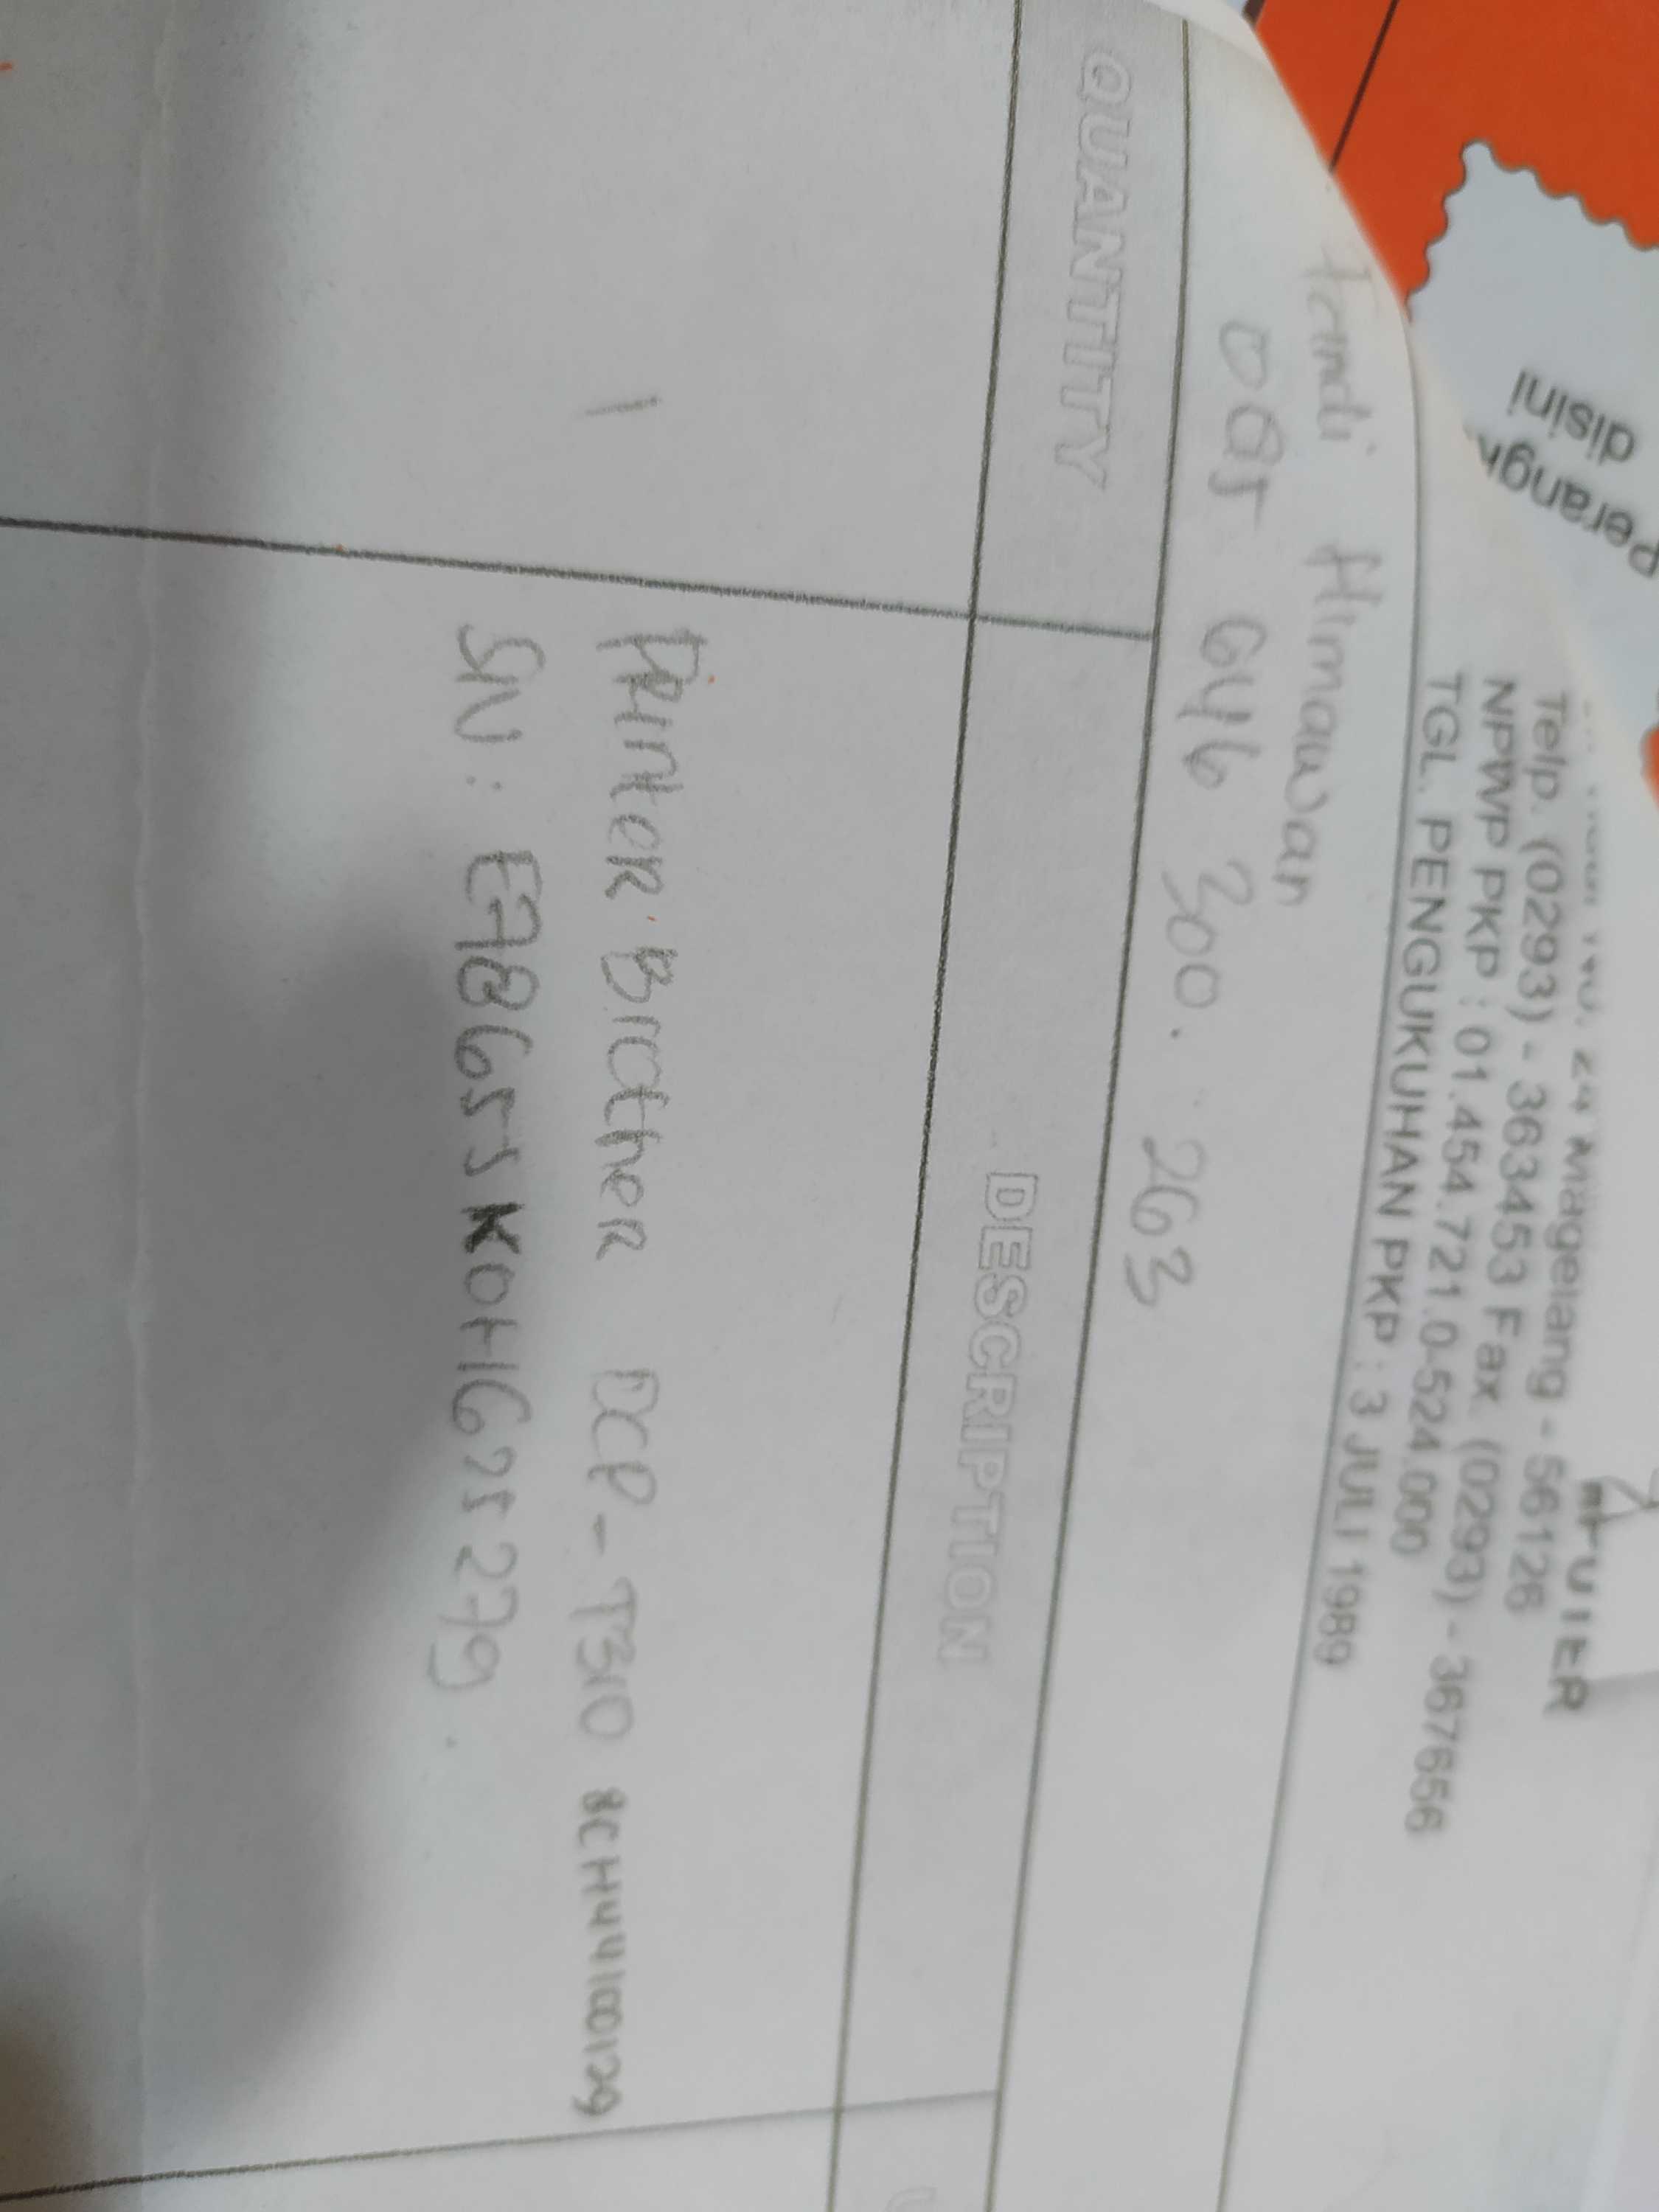 PUTER
24 Magelang - 56126
Telp. (0293) - 363453 Fax. (0293) - 367656
NPWP PKP : 01.454.721.0-524.000
TGL. PENGUKUHAN PKP : 3 JULI 1989
Himawan
085 646 300. 263
QUANTITY DESCRIPTION U
1 Printer Brother DCP-T310 8CH44100129
SN : E78655K0H625279.
Perangk
disini